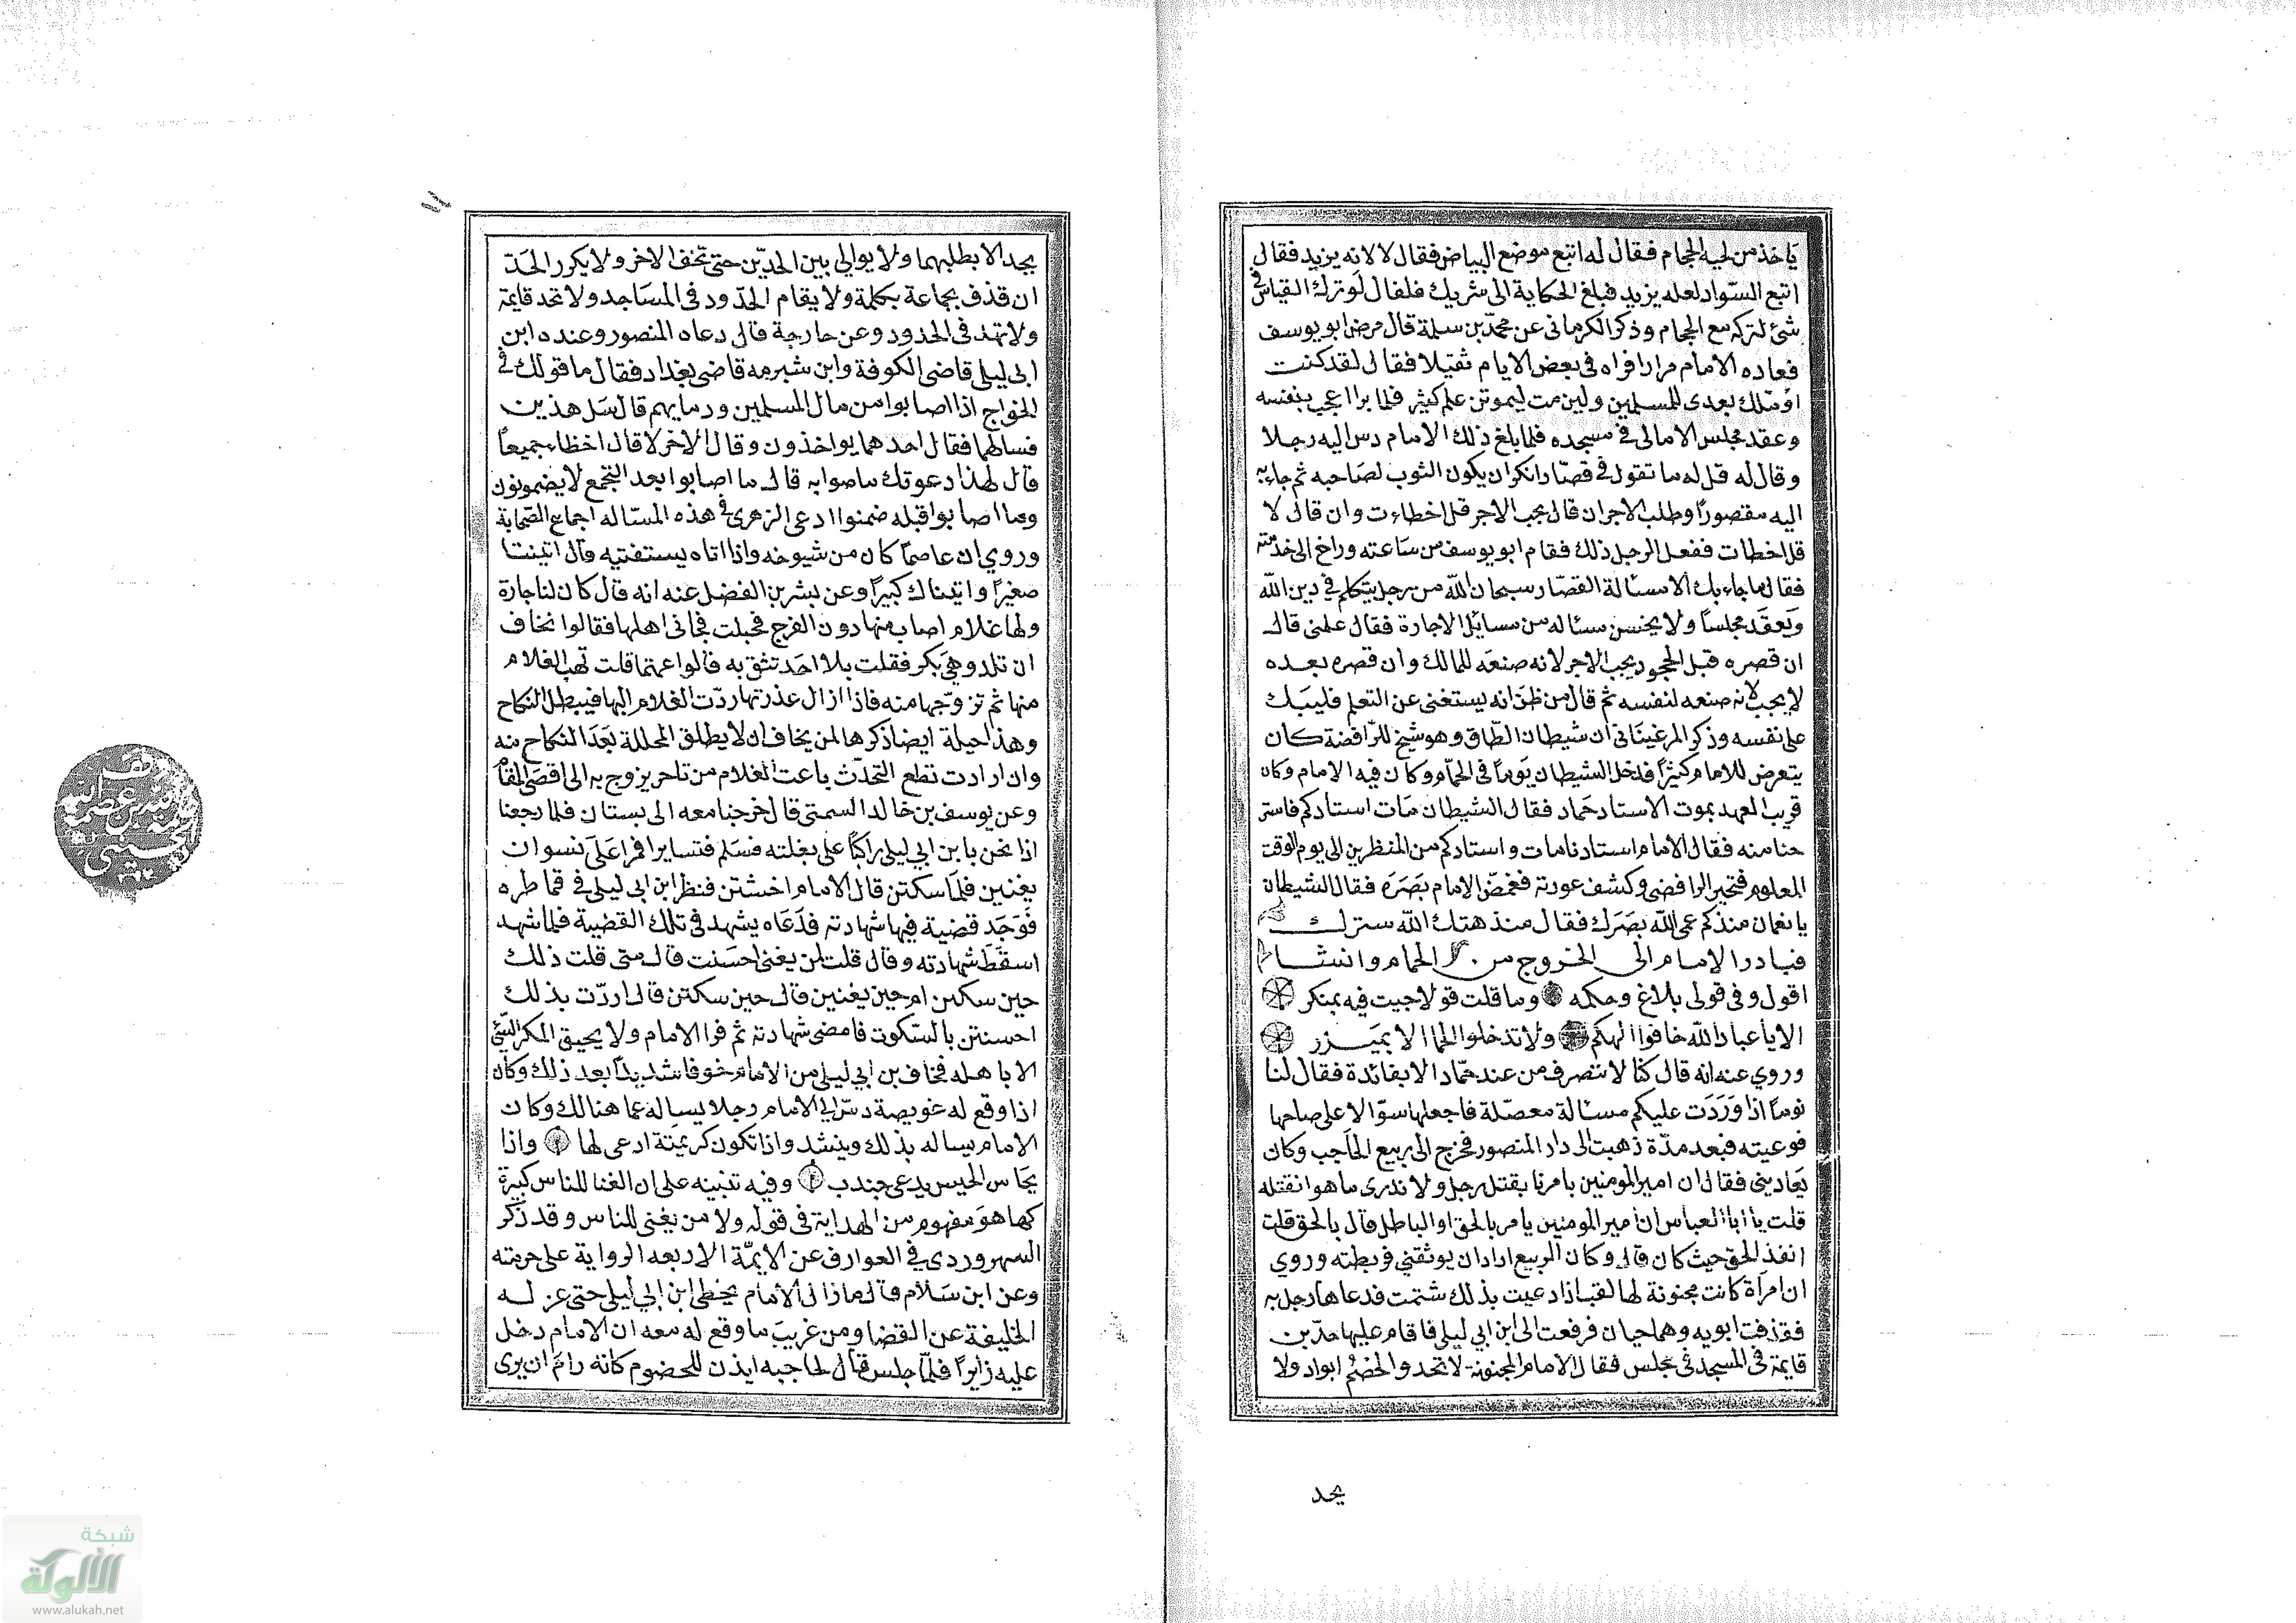 ياخذ من لحيه الحجام فقال له اتبع موضع البياض فقال لا لانه يزيد فقال
اتبع السواد لعله يزيد فبلغ الحكاية الى شريك فلفال لو ترك القياس في
شئ لتركه مع الحجام وذكر الكرمانى عن محمد بن سلمة قال مرض ابو يوسف
فعاده الامام مرارا فراه فى بعض الايام ثقيلا فقال لقد كنت
اؤملك بعدى للمسلمين ولين مت ليموتن علم كثير فلما برا اعجب بنفسه
وعقد مجلس الامالى فى مسجده فلما بلغ ذلك الامام دس اليه رجلا
وقال له قل له ما تقول فى قصار انكر ان يكون الثوب لصاحبه ثم جاء به
اليه مقصورا وطلب الاجر ان قال يجب الاجر قل اخطاءت وان قال لا
قل اخطات ففعل الرجل ذلك فقام ابو يوسف من ساعته وراح الى خدمته
فقال ما جاء بك الا مسئالة القصار سبحان الله من رجل يتكلم فى دين الله
ويعقد مجلسا ولا يحسن مسئاله من مسائل الاجارة فقال علمنى قال
ان قصره قبل الجحود يجب الاجر لانه صنعه للمالك وان قصره بعده
لا يجب لانه صنعه لنفسه ثم قال من ظن انه يستغنى عن التعلم فليبك
على نفسه وذكر المرغينانى ان شيطان الطاق وهو شيخ للرافضة كان
يتعرض للامام كثيرا فدخل الشيطان يوما فى الحمام وكان فيه الامام وكان
قريب العهد بموت الاستاد حماد فقال الشيطان مات استادكم فاستر
حنا منه فقال الامام استادنا مات واستادكم من المنظرين الى يوم الوقت
المعلوم فتحير الرافضى وكشف عورته فغمض الامام بصره فقال الشيطان
يا نعمان منذ كم عمى الله بصرك فقال منذ هتك الله سترك
فبادر الامام الى الخروج من الحمام وانشا
اقول وفى قولى بلاغ وحكمه وما قلت قولا جيت فيه بمنكر
الا يا عباد الله خافوا الهكم ولا تدخلوا الحما الا بميزر
وروي عنه انه قال كنا لا ننصرف من عند حماد الا بفائدة فقال لنا
يوما اذا وردت عليكم مسئالة معضلة فاجعلها سوالا على صاحبها
فوعيته فبعد مدة ذهبت الى دار المنصور فخرج الى ربيع الحاجب وكان
يعادينى فقال ان امير المومنين يامرنا بقتل رجل ولا ندرى ما هو انقتله
قلت يا ابا العباس ان امير المومنين يامر بالحق او الباطل قال بالحق قلت
انفذ الحق حيث كان قال وكان الربيع اراد ان يوثقني فربطته وروي
ان امراة كانت مجنونة لها لقب اذا دعيت بذلك شتمت فدعاها رجل به
فقذفت ابويه وهما حيان فرفعت الى ابن ابى ليلى فاقام عليها حدين
قايمة فى المسجد فى مجلس فقال الامام المجنونة لا تحد والخصم ابواه ولا
يحد
يجد الا بطلبهما ولا يوالي بين الحدين حتى تخف الاخر ولا يكرر الحد
ان قذف بجماعة بكلمة ولا يقام الحدود فى المساجد ولا تحد قايمة
ولا تمد فى الحدود وعن خارجة قال دعاه المنصور وعنده ابن
ابى ليلى قاضى الكوفة وابن شبرمه قاضى بغداد فقال ما قولك في
الخواج اذا اصابوا من مال المسلمين ودمايهم قال سل هذين
فسالهما فقال احدهما يواخذون وقال الاخر لا قال اخطاء جميعا
قال لهذا دعوتك ما صوابه قال ما اصابوا بعد التجمع لا يضمنون
وما اصابوا قبله ضمنوا ادعى الزهرى فى هذه المسئاله اجماع الصحابة
وروي ان عاصما كان من شيوخه واذا اتاه يستفتيه قال اتيتنا
صغيرا واتيناك كبيرا وعن بشر بن الفضل عنه انه قال كان لنا جارة
ولها غلام اصاب منها دون الفرج فحبلت فجانى اهلها فقالوا نخاف
ان تلد وهي بكر فقلت بلا احد تثق به قالوا عمتها قلت تهب الغلام
منها ثم تزوجها منه فاذا ازال عذرتها ردت الغلام اليها فيبطل النكاح
وهذا حيلة ايضا ذكرها لمن يخاف ان لا يطلق المحللة بعد النكاح منه
وان ارادت تقطع التحدث باعت الغلام من تاجر يزوج به الى اقصى
وعن يوسف بن خالد السمتى قال خرجنا معه الى بستان فلما رجعنا
اذا نحن بابن ابي ليلى راكبا على بغلته فسلم فتسايرا فمرا على نسوان
يغنين فلما سكتن قال الامام احسنتن فنظر ابن ابى ليلى فى قماطره
فوجد قضية فيها شهادته فدعاه يشهد فى تلك القضية فلما شهد
اسقط شهادته وقال قلت لمن يغنى احسنت قال متى قلت ذلك
حين سكتن ام حين يغنين قال حين سكتن قال اردت بذلك
احسنتن بالسكوت فامضى شهادته ثم قرا الامام ولا يحيق المكر السيئ
الا باهله فخاف بن ابي ليلى من الامام خوفا شديدا بعد ذلك وكان
اذا وقع له عويصة دس الى الامام رجلا يساله عما هنالك وكان
الامام يساله بذلك وينشد واذا تكون كريهة ادعى لها واذا
يحاس الحيس يدعى جندب وفيه تنبيه على ان الغنا للناس كبيرة
كما هو مفهوم من الهداية فى قوله ولا من يغنى للناس وقد ذكر
السهروردى فى العوارف عن الايمة الاربعه الرواية على حرمته
وعن ابن سلام قال مازال الامام يخطى ابن ابي ليلى حتى عزله
الخليفة عن القضا ومن غريب ما وقع له معه ان الامام دخل
عليه زايرا فلما جلس قال لحاجبه ايذن للخصوم كانه رام ان يرى
شبكة
الألوكة
www.alukah.net